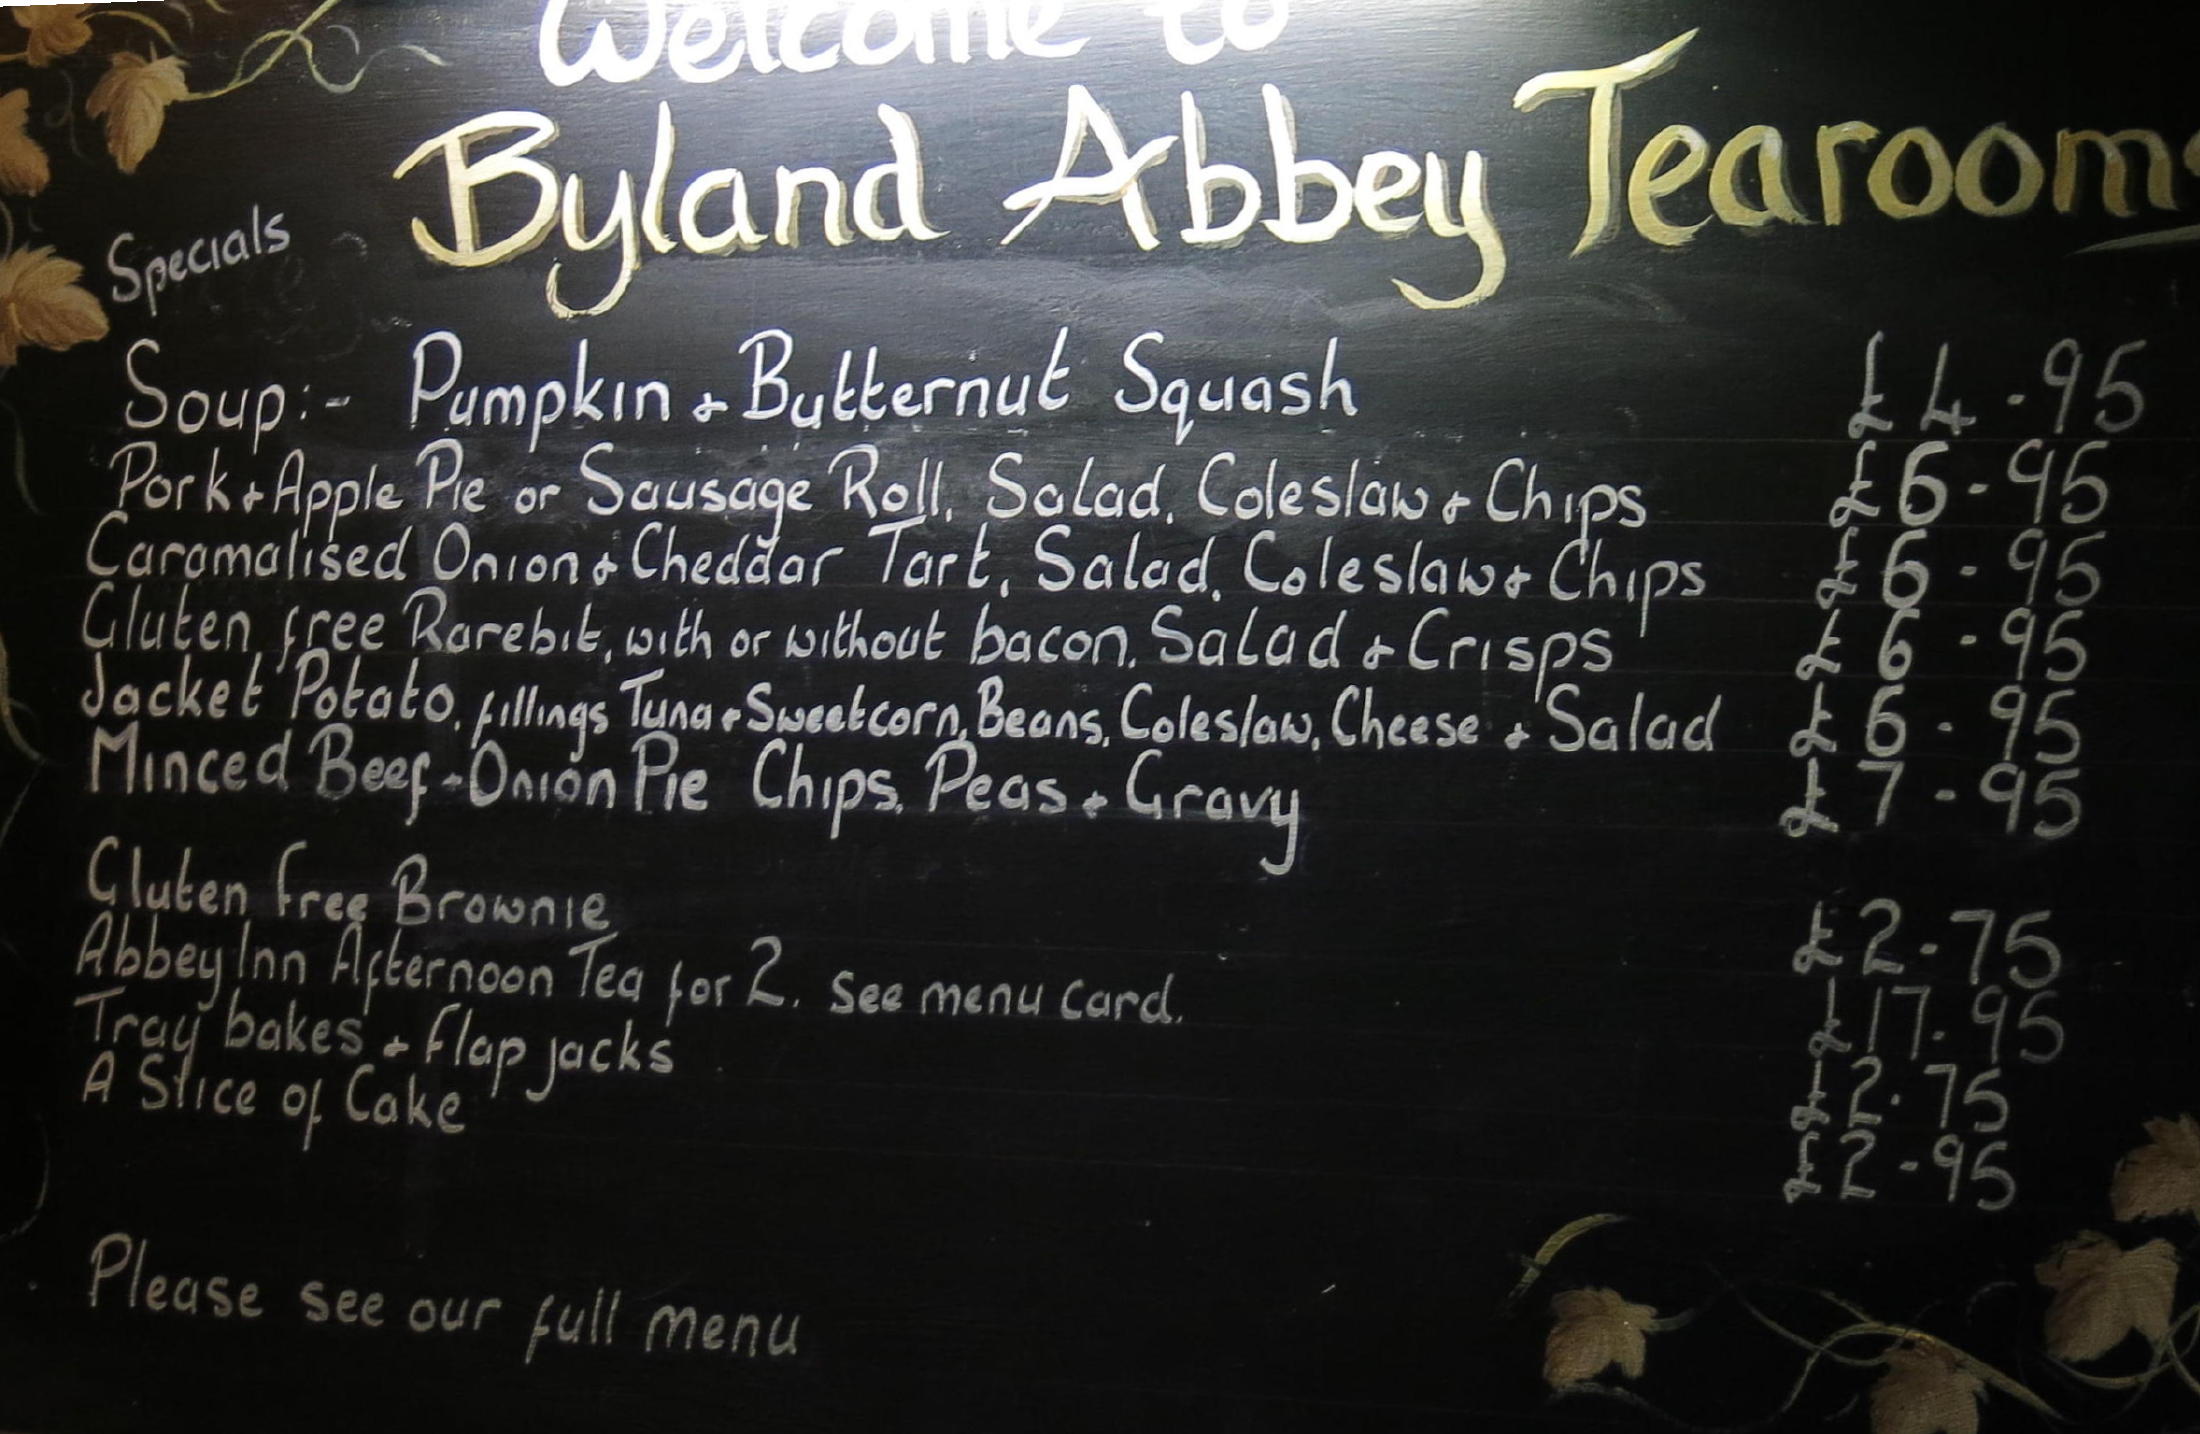 Welcome to
Byland Abbey Tearooms
Specials
Soup:- Pumpkin & Butternut Squash £4-95
Pork & Apple Pie or Sausage Roll, Salad, Coleslaw & Chips £6-95
Caramalised Onion & Cheddar Tart, Salad, Coleslaw & Chips £6-95
Gluten free Rarebit, with or without bacon, Salad & Crisps £6-95
Jacket Potato, fillings Tuna & Sweetcorn, Beans, Coleslaw, Cheese & Salad £6-95
Minced Beef & Onion Pie Chips, Peas & Gravy £7-95
Gluten Free Brownie £2-75
Abbey Inn Afternoon Tea for 2. See menu card. £17.95
Tray bakes & Flap jacks £2.75
A Slice of Cake £2-95
Please see our full menu